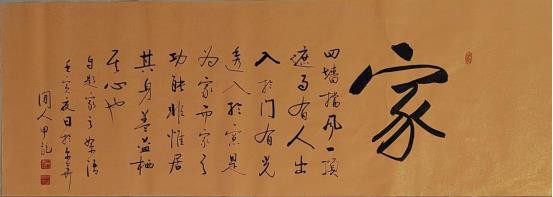 家
四墙挡风一顶
遮雨有人出
入於门有光
透入於窗是
为家而家之
功能非惟居
其身盖益栖
其心也
自题家之絮语
壬寅夏日於
闲人甲記